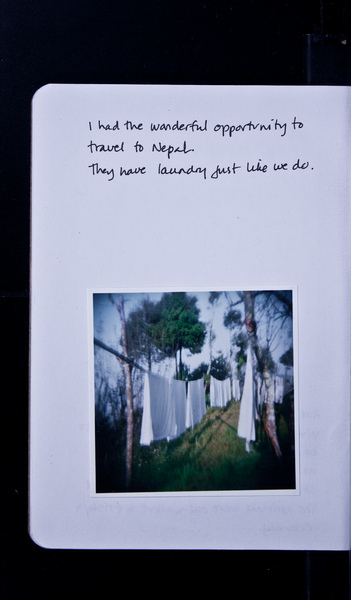 I had the wonderful opportunity to
travel to Nepal.
They have laundry just like we do.